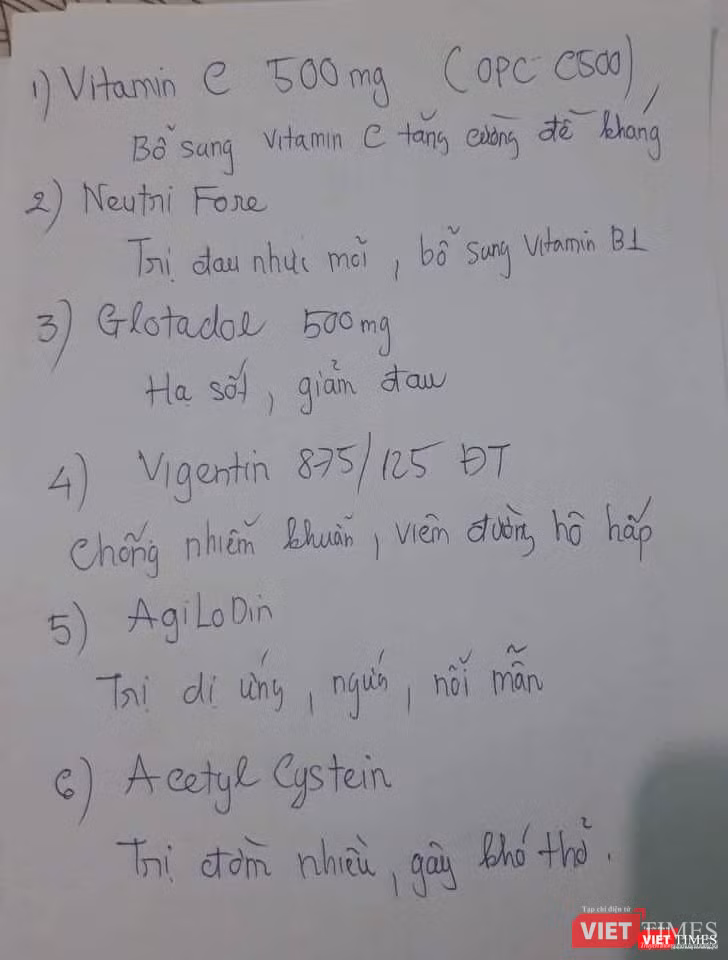 1) Vitamin C 500mg (OPC C500),
Bổ sung vitamin C tăng cường đề kháng
2) Neutri Fore
Trị đau nhức mỏi, bổ sung Vitamin B1
3) Glotadol 500mg
Hạ sốt, giảm đau
4) Vigentin 875/125 ĐT
Chống nhiễm khuẩn, viêm đường hô hấp
5) AgiLoDin
Trị dị ứng, ngứa, nổi mẫn
6) Acetyl Cystein
Trị đờm nhiều, gây khó thở.
Tạp chí điện tử
VIETTIMES
VIETTIMES